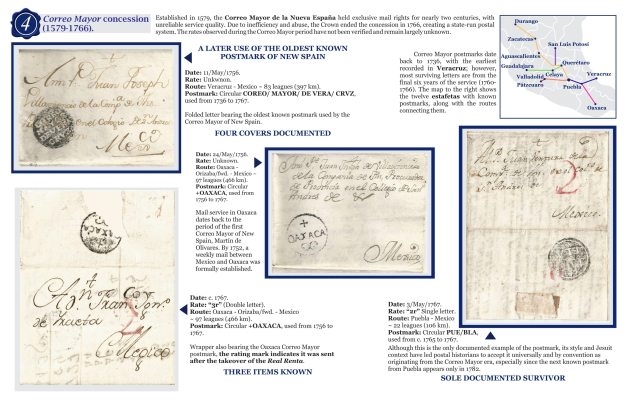 4
Correo Mayor concession
(1579-1766).
Established in 1579, the Correo Mayor de la Nueva España held exclusive mail rights for nearly two centuries, with
unreliable service quality. Due to inefficiency and abuse, the Crown ended the concession in 1766, creating a state-run postal
system. The rates observed during the Correo Mayor period have not been verified and remain largely unknown.
A LATER USE OF THE OLDEST KNOWN
POSTMARK OF NEW SPAIN
Date: 11/May/1756.
Rate: Unknwon.
Route: Veracruz - Mexico ~ 83 leagues (397 km).
Postmark: Circular COREO/ MAYOR/ DE VERA/ CRVZ,
used from 1736 to 1767.
Folded letter bearing the oldest known postmark used by the
Correo Mayor of New Spain.
FOUR COVERS DOCUMENTED
Correo Mayor postmarks date
back to 1736, with the earliest
recorded in Veracruz; however,
most surviving letters are from the
final six years of the service (1760-
1766). The map to the right shows
the twelve estafetas with known
postmarks, along with the routes
connecting them.
Durango
Zacatecas
San Luis Potosí
Aguascalientes
Guadalajara
Querétaro
Valladolid
Celaya
Pátzcuaro
Puebla
Veracruz
Oaxaca
Date: 24/May/1756.
Rate: Unknown.
Route: Oaxaca -
Orizaba/fwd. - Mexico ~
97 leagues (466 km).
Postmark: Circular
+OAXACA, used from
1756 to 1767.
Mail service in Oaxaca
dates back to the
period of the first
Correo Mayor of New
Spain, Martín de
Olivares. By 1752, a
weekly mail between
Mexico and Oaxaca was
formally established.
OAXACA
Mexico
Mexico
Mexico.
Mexico
Date: c. 1767.
Rate: "3r" (Double letter).
Route: Oaxaca - Orizaba/fwd. - Mexico
~ 97 leagues (466 km).
Postmark: Circular +OAXACA, used from 1756 to
1767.
Wrapper also bearing the Oaxaca Correo Mayor
postmark, the rating mark indicates it was sent
after the takeover of the Real Renta.
THREE ITEMS KNOWN
Date: 3/May/1767.
Rate: "2r" Single letter.
Route: Puebla - Mexico
~ 22 leagues (106 km).
Postmark: Circular PUE/BLA,
used from c. 1765 to 1767.
Although this is the only documented example of the postmark, its style and Jesuit
context have led postal historians to accept it universally and by convention as
originating from the Correo Mayor era, especially since the next known postmark
from Puebla appears only in 1782.
SOLE DOCUMENTED SURVIVOR